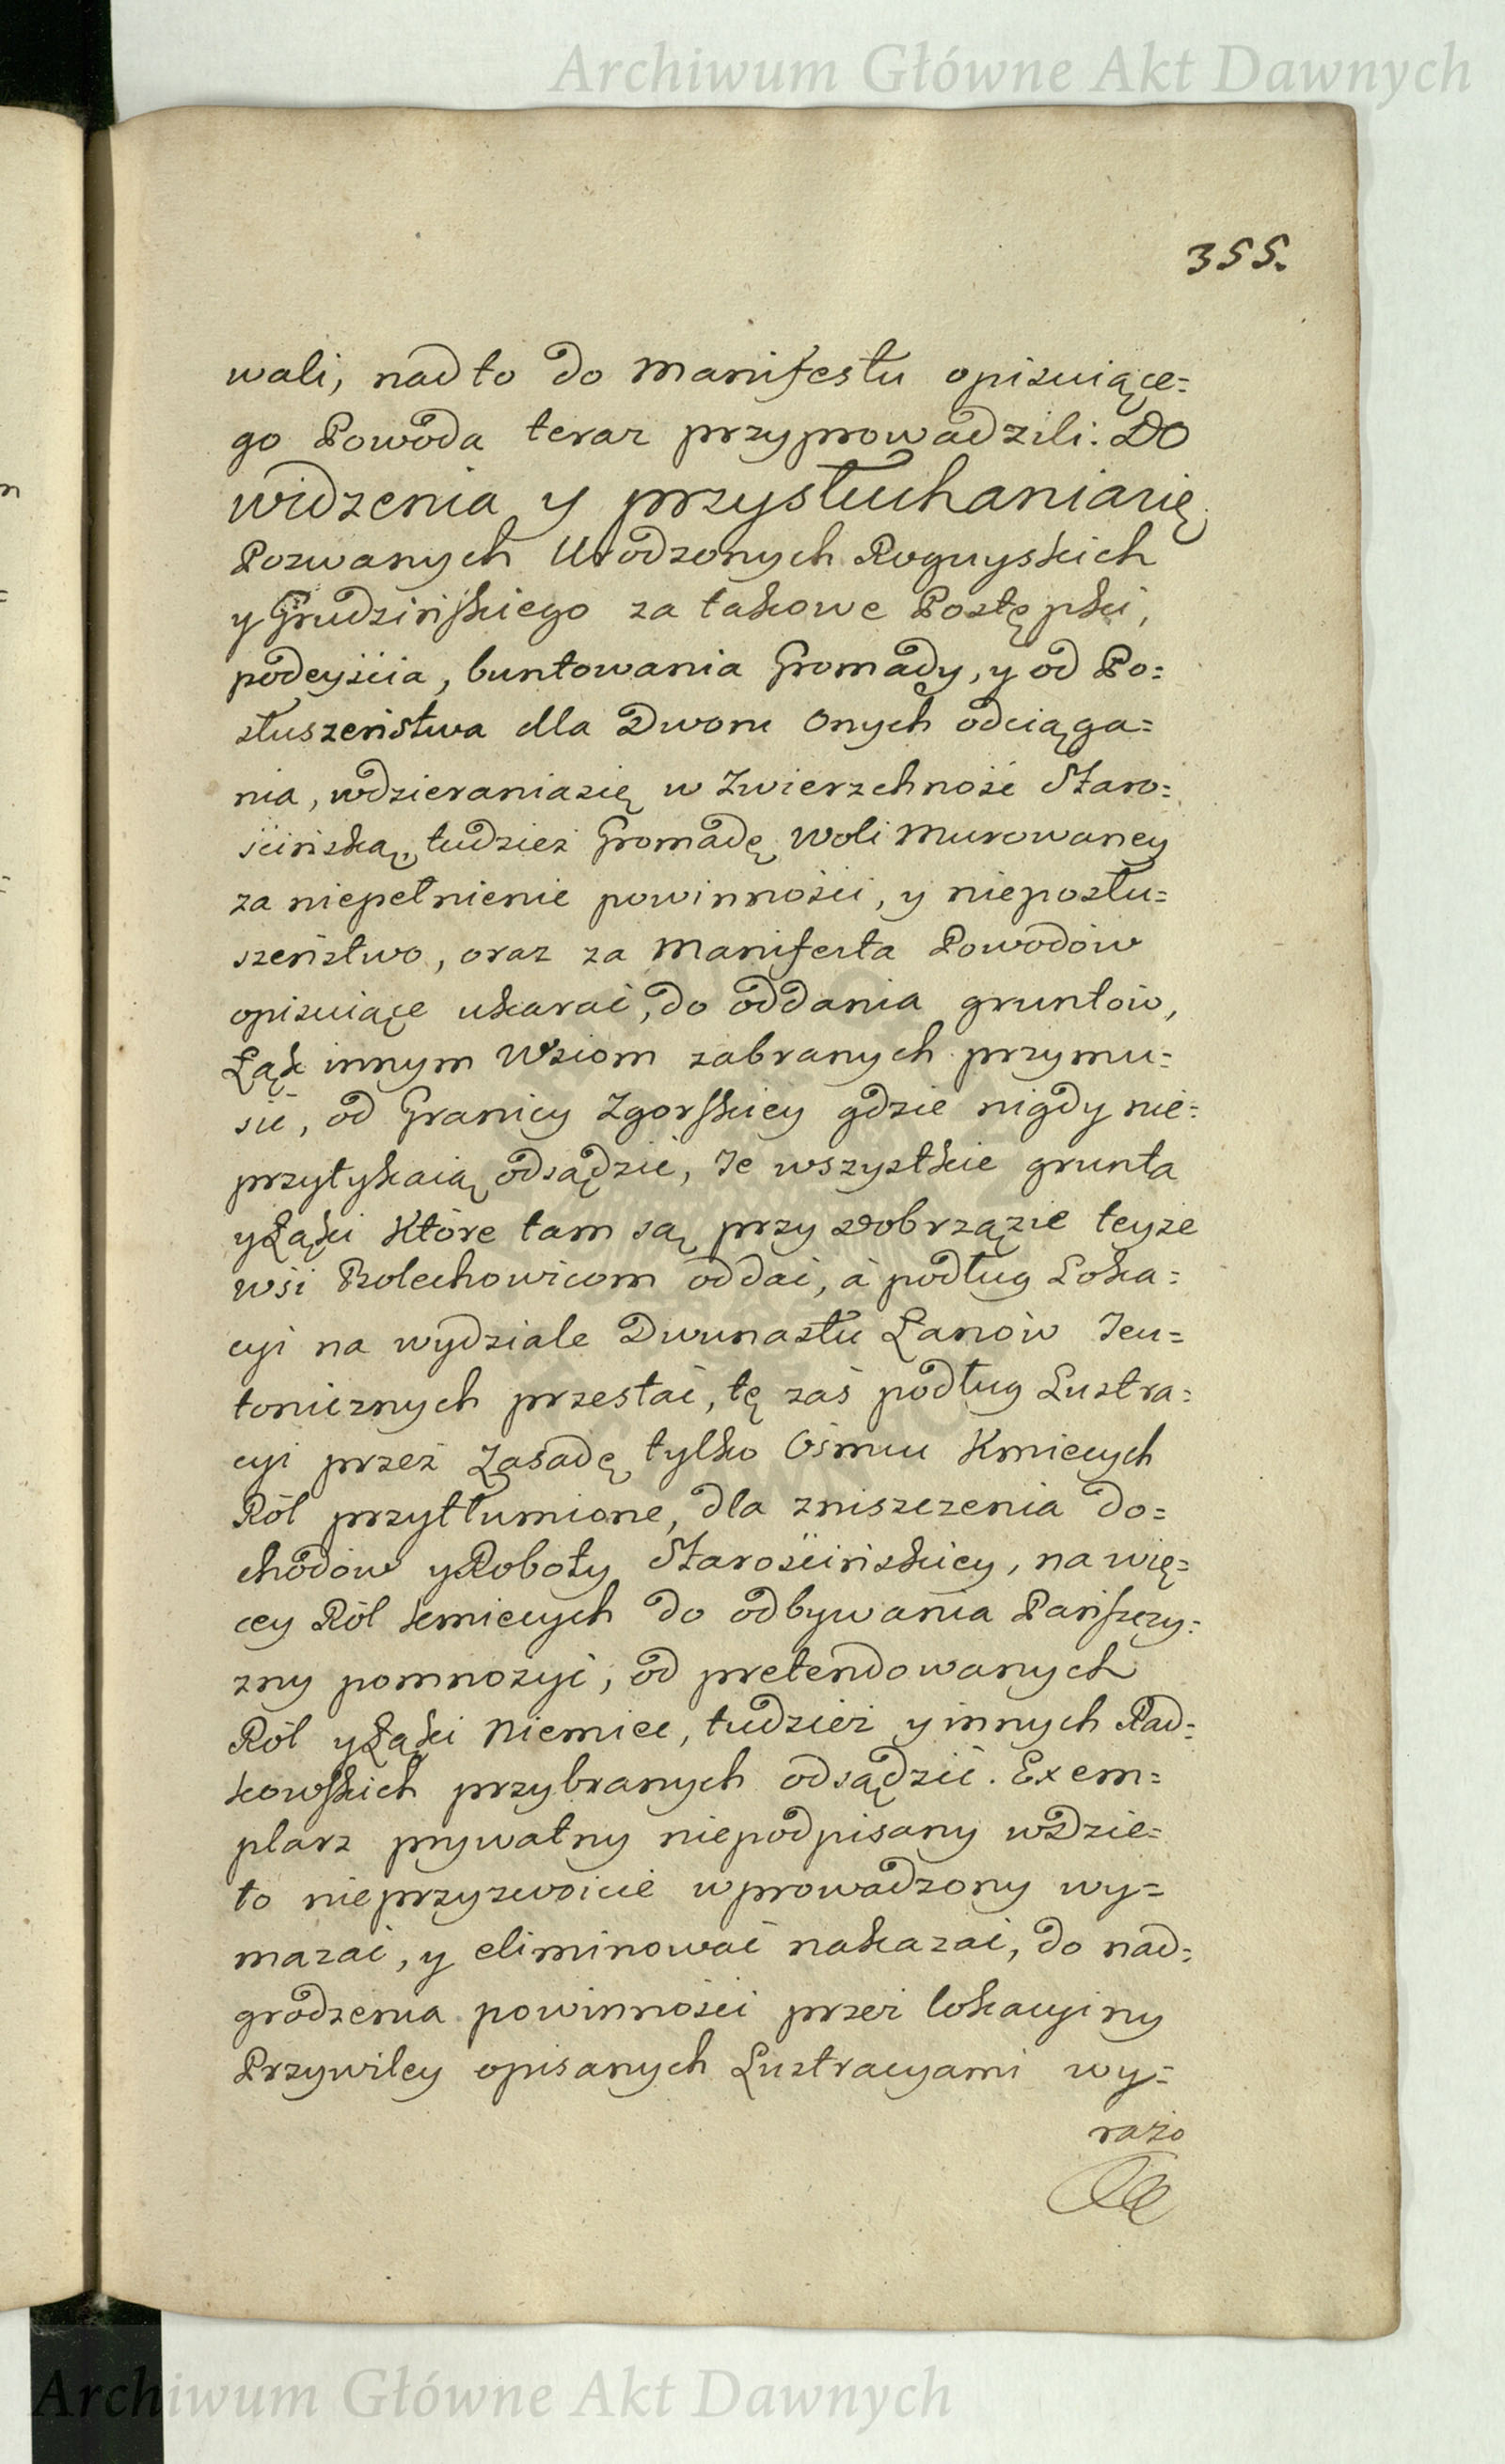 Archiwum Główne Akt Dawnych
355.
wali, nadto do Manifestu opisuiące=
go Powoda teraz przyprowadzili: Do
widzenia y przysłuchaniasię
Pozwanych Urodzonych Roguyskich
y Grudzińskiego za takowe Postępki,
podeyścia, buntowania Gromady, y od Po=
słuszeństwa dla Dworu onych odciąga=
nia, wdzieraniasię w Zwierzchność Staro=
ścińską, tudzież Gromadę Woli Murowaney
za niepełnienie powinności, y nieposłu=
szeństwo, oraz za Manifesta Powodów
opisuiące ukarać, do oddania gruntów,
Łąk innym Wsiom zabranych przymu=
sić, od Granicy Zgorskiey gdzie nigdy nie=
przytykaią odsądzić, Je wszystkie grunta
y Łąki które tam są przy Dobrzązie teyże
wsi Bolechowicom oddać, à podług Loka=
cyi na wydziale Dwunastu Łanów Teu=
tonicznych przestać, tę zaś podług Lustra=
cyi przez Zasadę tylko Ośmiu Kmiecych
Ról przytłumione, dla zniszczenia do=
chodów y Roboty Starościńskiey, na wię=
cey Ról kmiecych do odbywania Pańszczy=
zny pomnożyć, od pretendowanych
Ról y Łąki Niemice, tudzież y innych Rad=
kowskich przybranych odsądzić. Exem=
plarz prywatny niepodpisany w Dzie=
to nieprzyzwoicie wprowadzony wy=
mazać, y eliminować nakazać, do nad=
grodzenia powinności przez lokacyiny
Przywiley opisanych Lustracyami wy=
rażo
Archiwum Główne Akt Dawnych